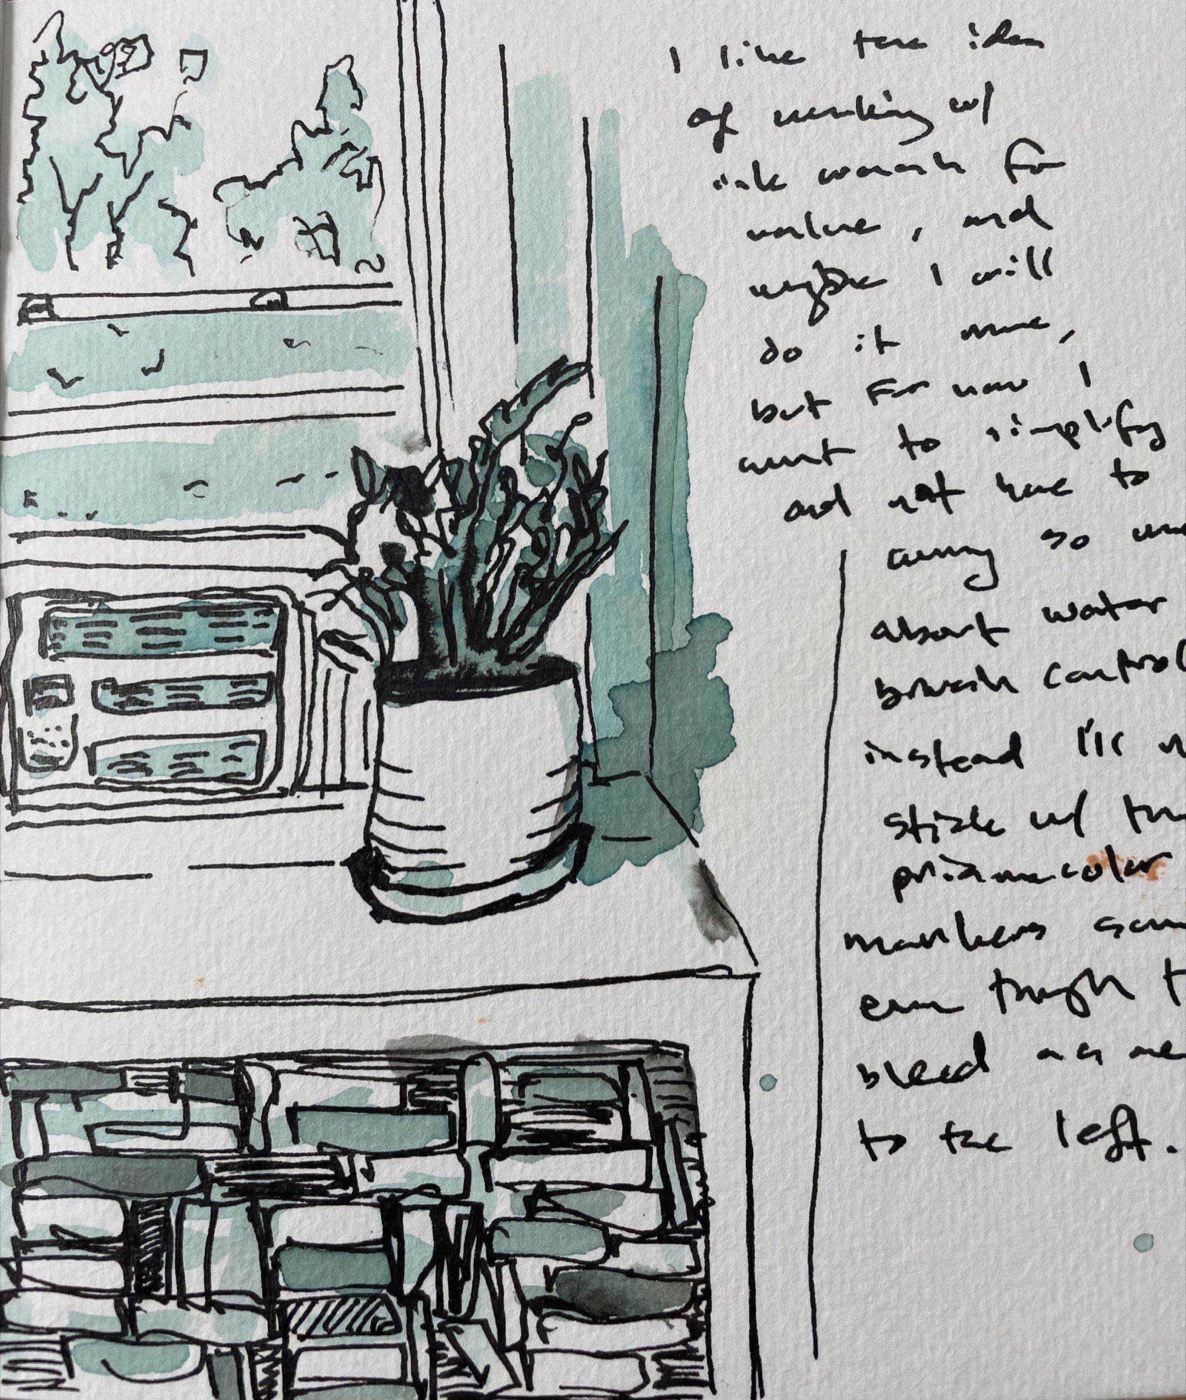 I like the idea
of working w/
ink wash for
value, and
maybe I will
do it more,
but for now I
want to simplify
and not have to
carry so
about water
brush control
instead I'll
stick w/ the
prismacolor
markers
even though
bleed
to the left.